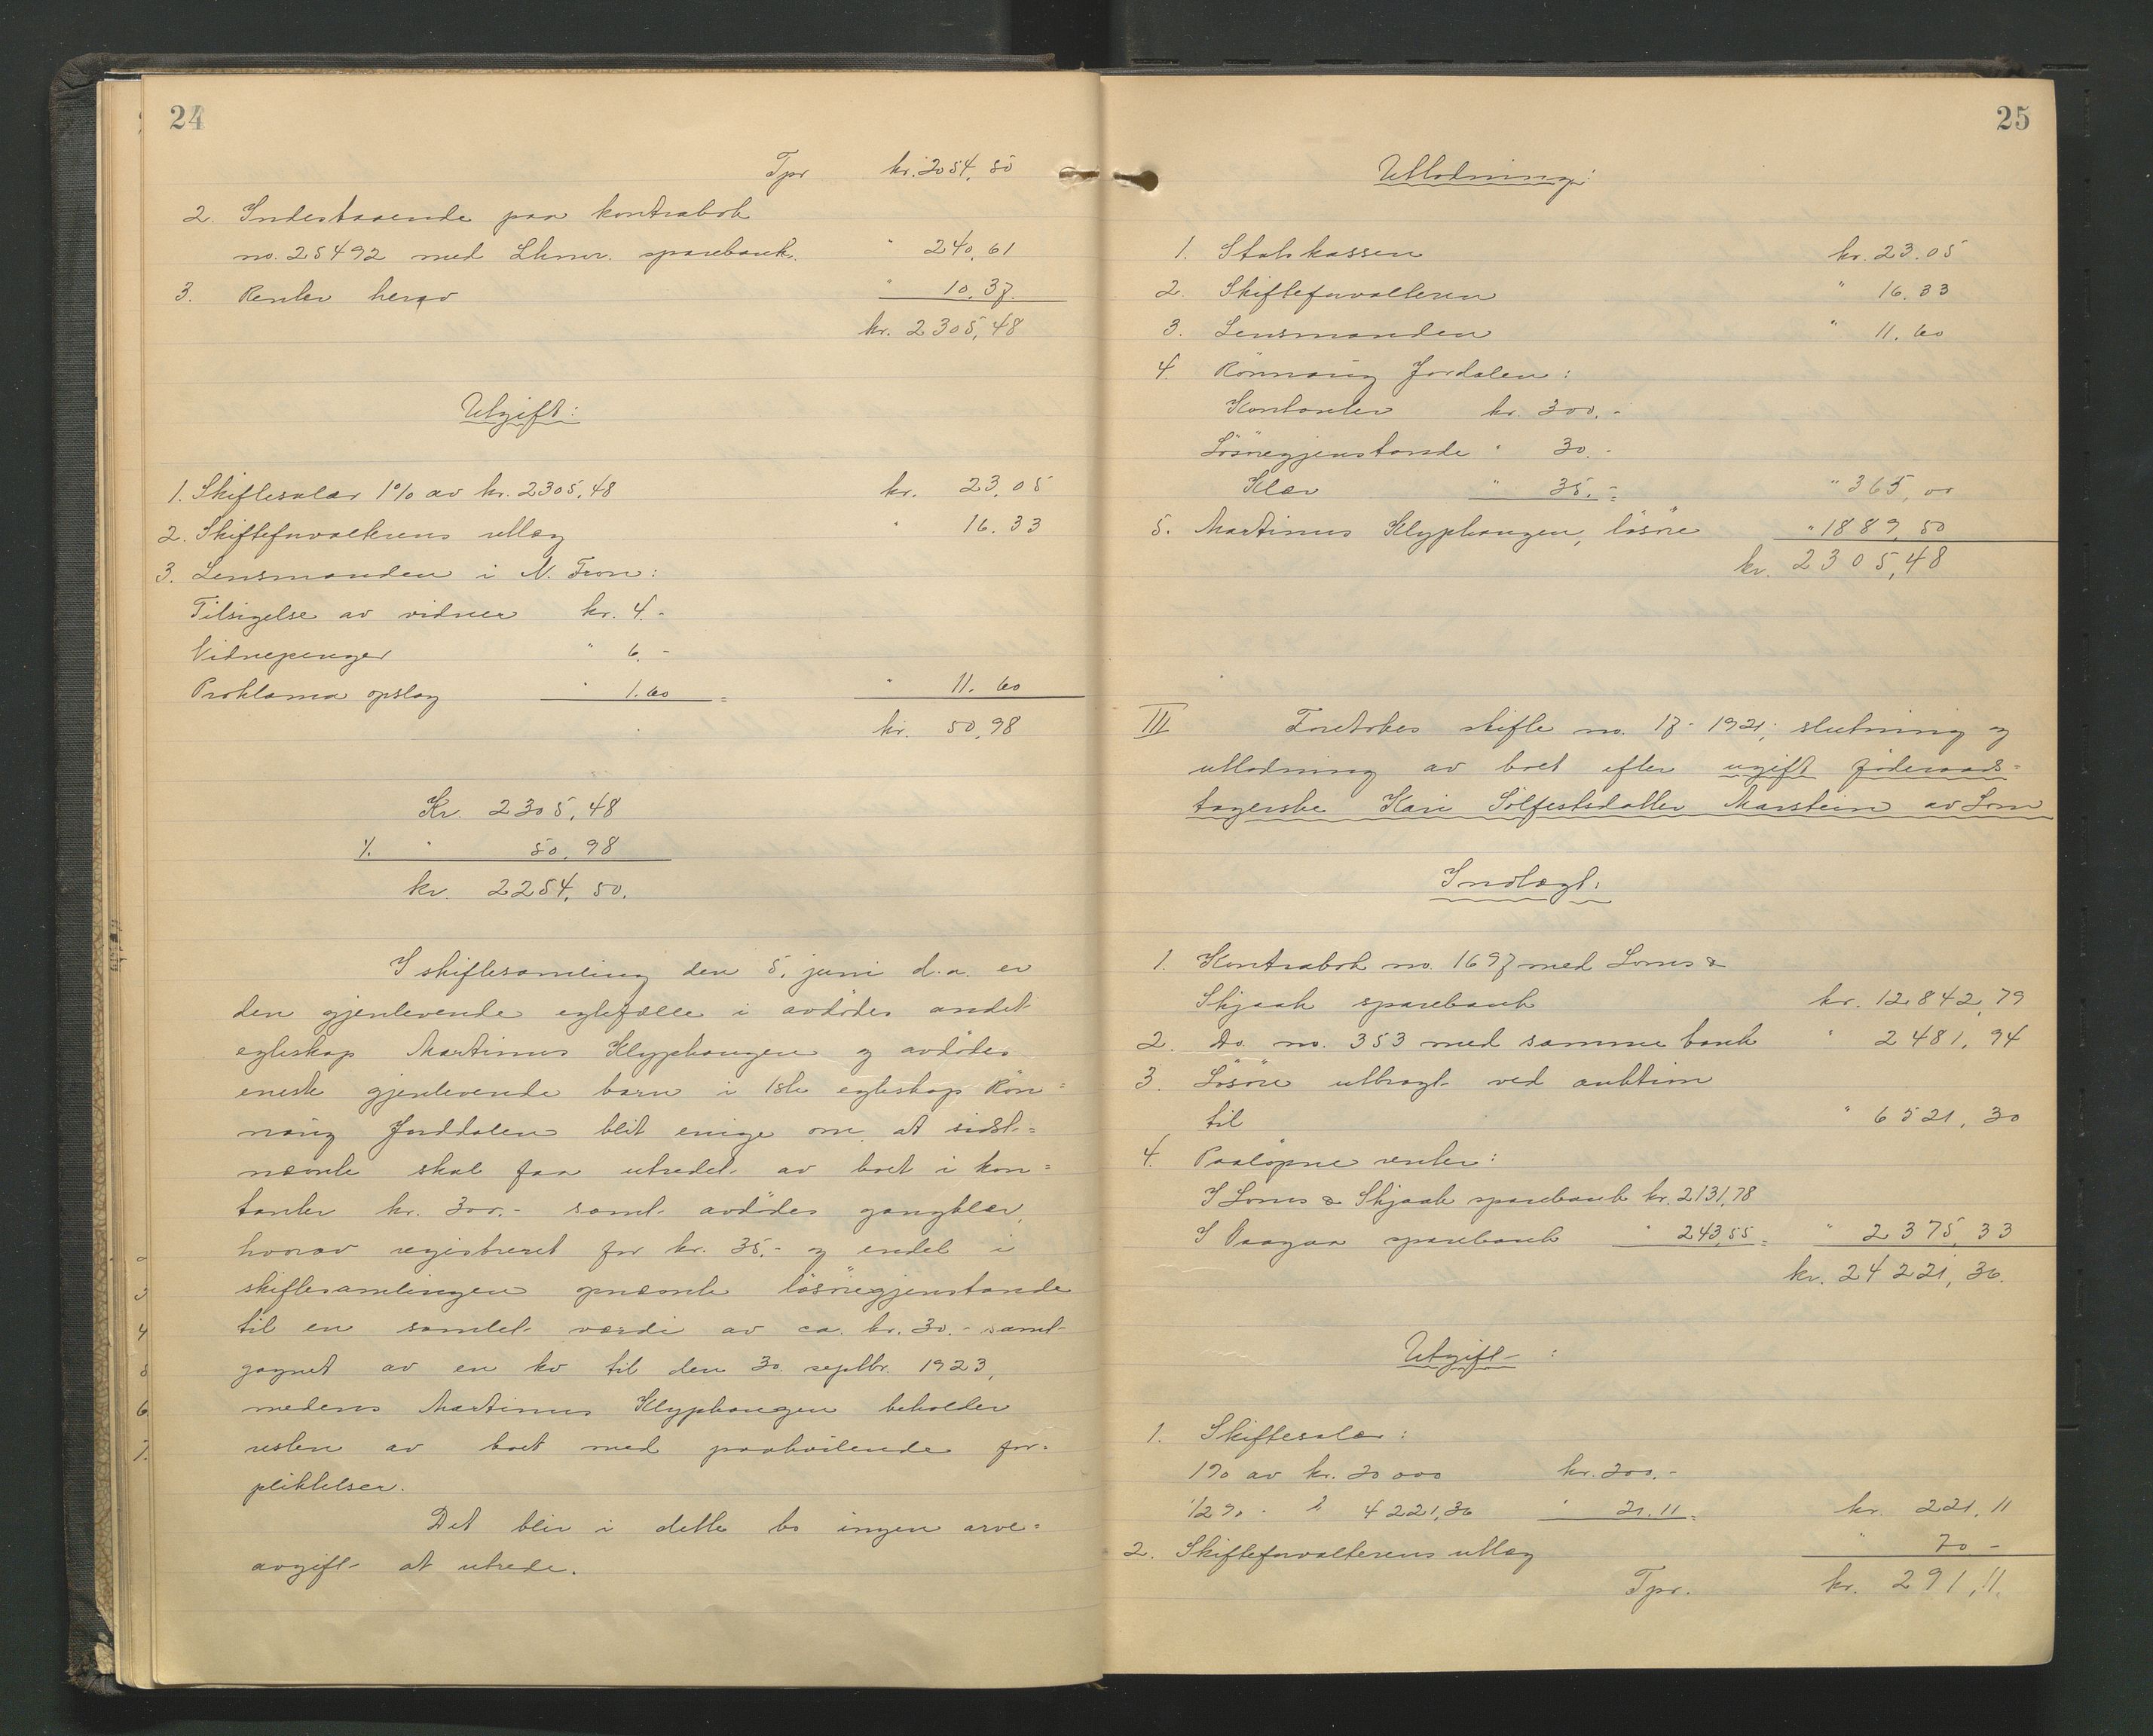 24
Tpr kr. 2054,50
2. Indestaaende paa kontrabok
no. 25492 med Lhmr. sparebank. " 240,61
3. Renter herav " 10.37.
kr. 2305,48
Utgift:
1. Skiftesalær 1% av kr. 2305,48 kr. 23,05
2. Skifteforvalterens utlæg " 16.33
3. Lensmanden i N. Fron:
Tilsigelse av vidner kr. 4.-
Vidnepenger " 6.-
Proklama opslag " 1.60 = " 11.60
kr. 50,98
Kr. 2305,48
./. " 50,98
kr. 2254,50.
I skiftesamling den 5. juni d.a. er
den gjenlevende egtefælle i avdödes andet
egteskap Martinus Klyphaugen og avdödes
eneste gjenlevende barn i 1ste egteskap Rön=
naug Jorddalen blit enige om at sidst-=
nævnte skal faa utredet av boet i kon=
tanter kr. 300.- samt avdödes gangklær,
hvorav registreret for kr. 35.- og endel i
skiftesamlingen opnævnte lösöregjenstande
til en samlet værdi av ca. kr. 30.- samt
gagnet av en ko til den 30. septbr. 1923,
medens Martinus Klyphaugen beholder
resten av boet med paahvilende for=
pliktelser.
Det blir i dette bo ingen arve=
avgift at utrede.
25
Utlodning:
1. Statskassen kr. 23.05
2. Skifteforvalteren " 16.33
3. Lensmanden " 11.60
4. Rönnaug Jordalen:
Kontanter kr. 300.-
Lösöregjenstande " 30.-
Klær " 35.- = " 365,00
5. Martinus Klyphaugen, lösöre " 1889,50
kr. 2305,48
III Foretokes skifte no. 17-1921; slutning og
utlodning av boet efter ugift föderaads=
tagerske Kari Sölfestsdatter Marstein av Lom
Indtægt:
1. Kontrabok no. 1697 med Loms &
Skjaak sparebank kr. 12842,79
2. Do. no. 353 med samme bank " 2481,94
3. Lösöre utbragt ved auktion
til " 6521,30
4. Paalöpne renter:
I Loms & Skjaak sparebank kr. 2131,78
I Vaagaa sparebank " 243,55 = " 2375,33
kr. 24221,36.
Utgift:
1. Skiftesalær:
1% av kr. 20000 kr. 200.-
1/2% - " 4221,36 " 21.11 = kr. 221,11
2. Skifteforvalterens utlæg " 70-
Tpr. kr. 291,11.